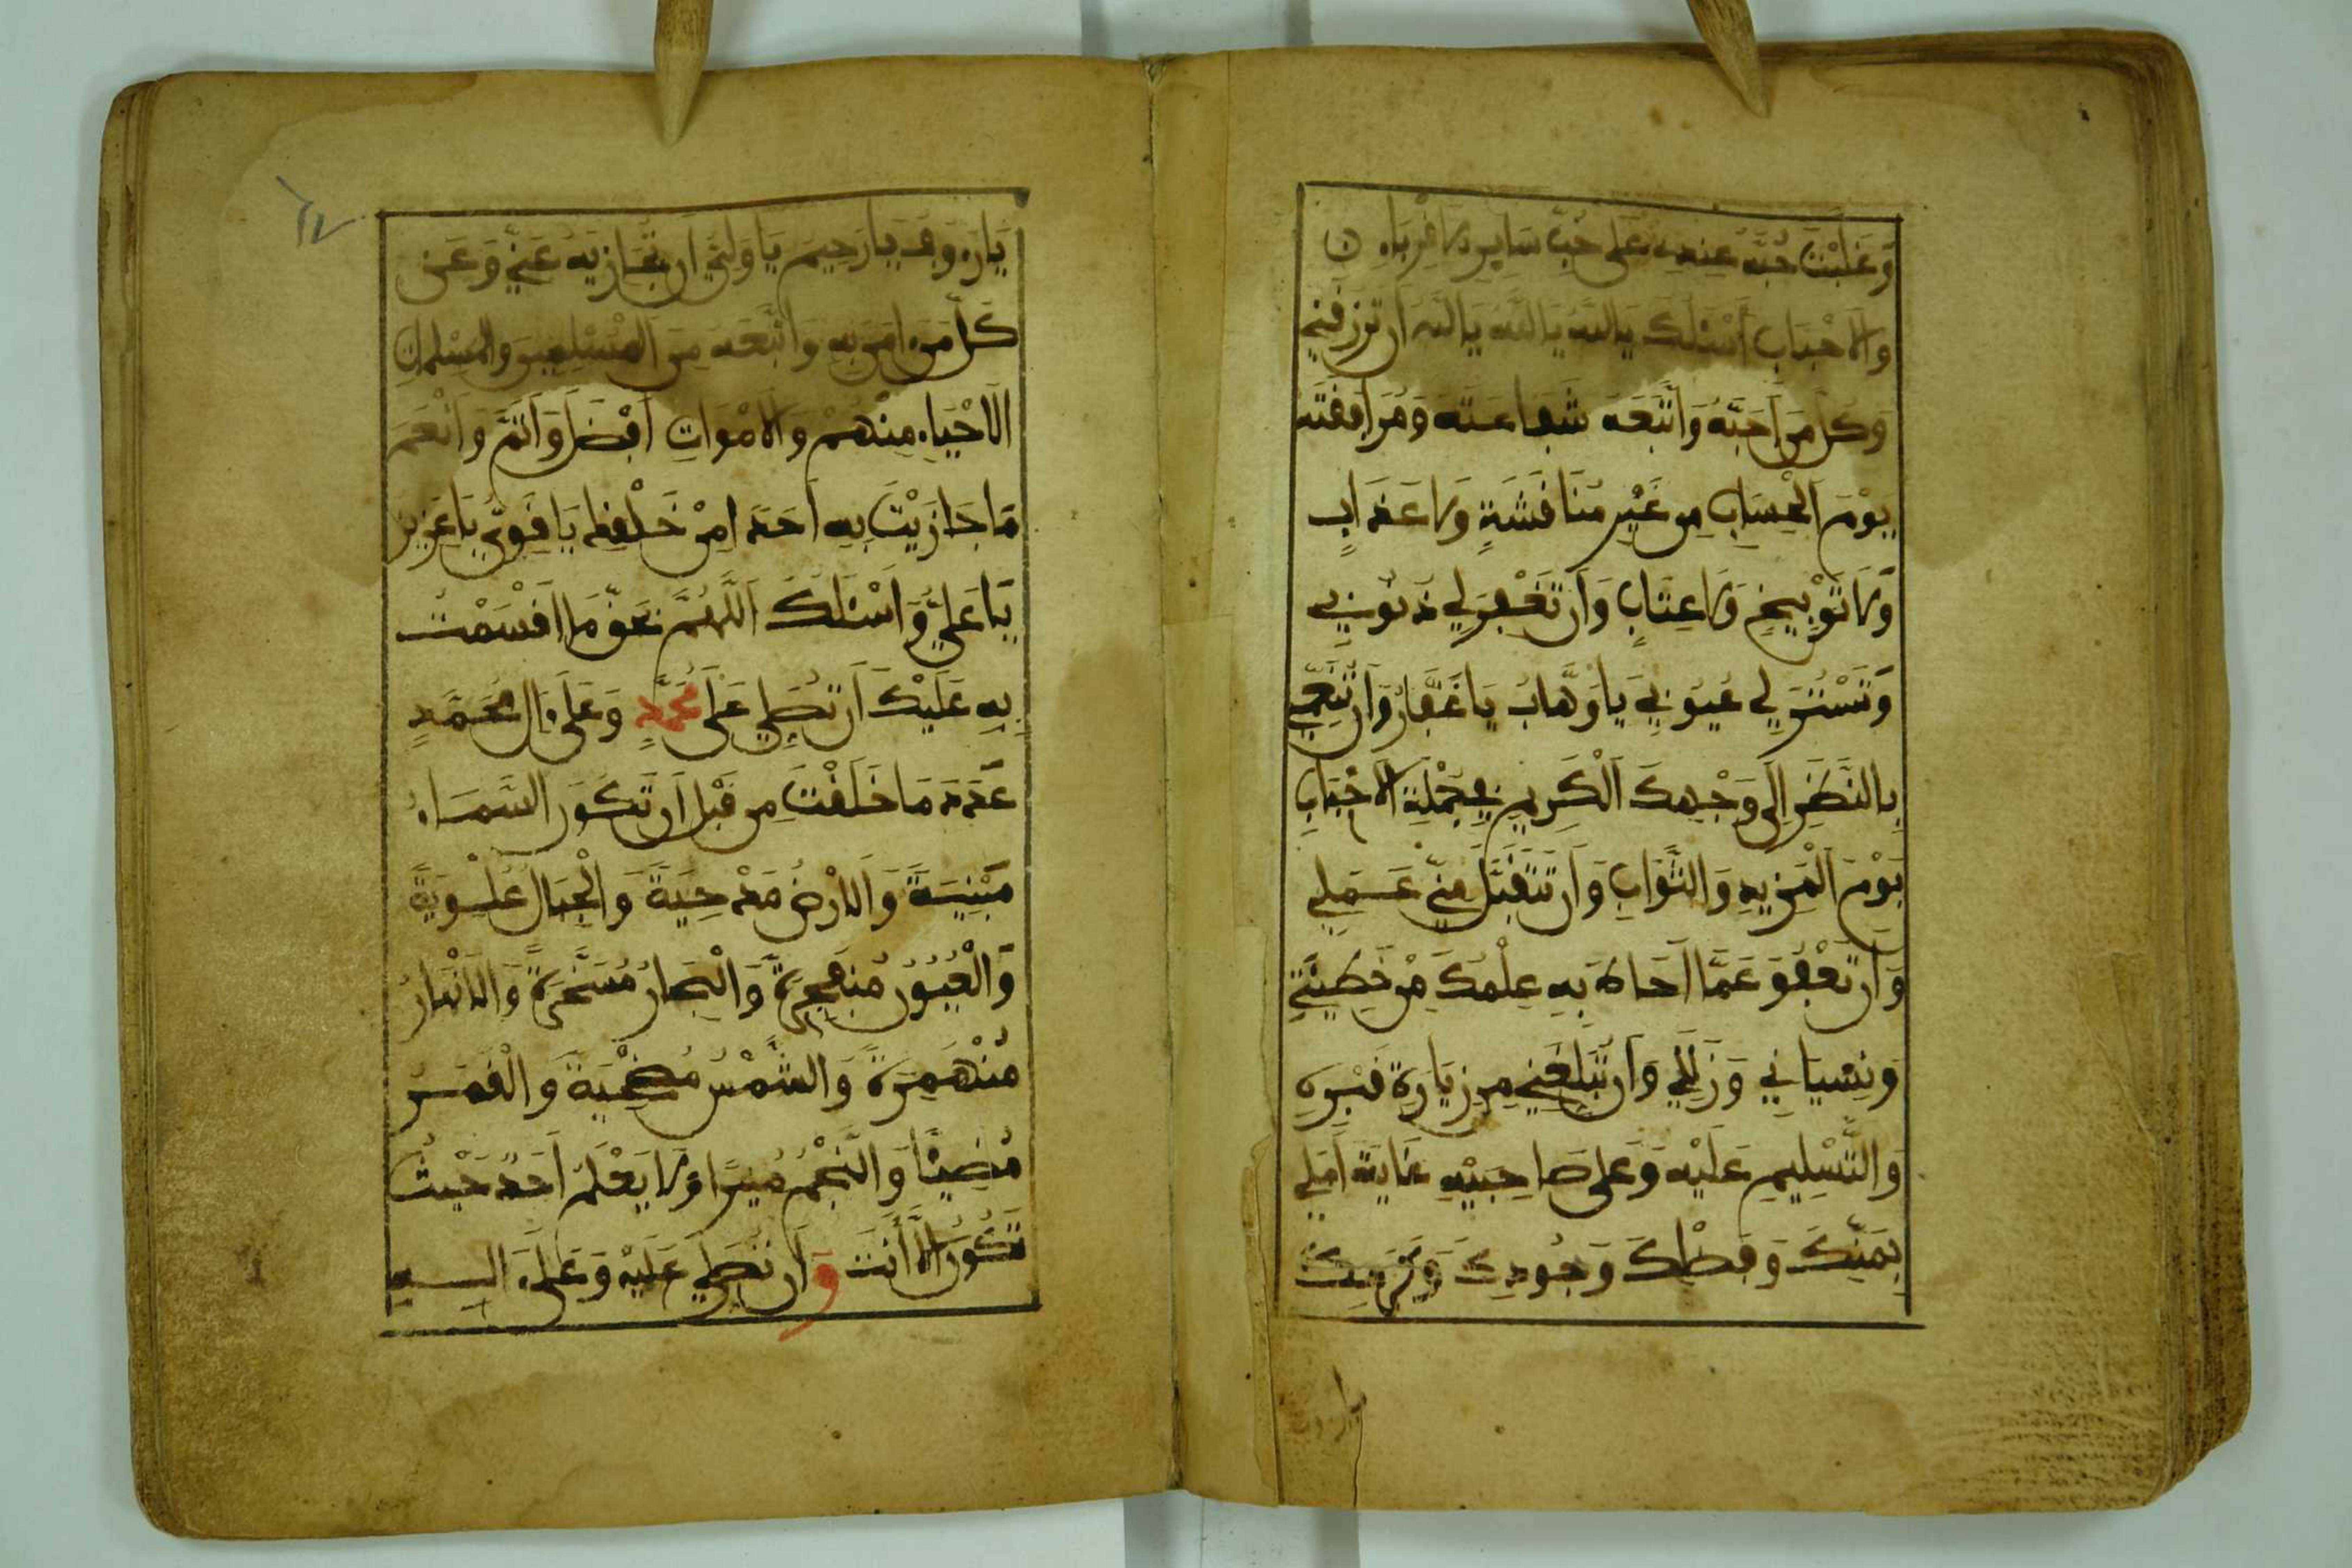 وَغَلَبَتْ حُبَّهُ عِنْدِي عَلَى حُبِّ سَايِرِ الاَقْرِبَاءِ
وَالاَحْبَابِ أَسْئَلُكَ يَااَللَّهُ يَااَللَّهُ يَااَللَّهُ أَن تَرْزُقَنِي
وَكُلَّ مَنْ اَحَبَّهُ وَاتَّبَعَهُ شَفَاعَتَهُ وَمُرَافَقَتَهُ
يَوْمَ الْحِسَابِ مِن غَيْرِ مُنَاقَشَةٍ وَلاَ عَذَابٍ
وَلاَ تَوْبِيخٍ وَلاَ عِتَابٍ وَأَن تَغْفِرَ لِي ذُنُوبِي
وَتَسْتُرَ لِي عُيُوبِي يَا وَهَّابُ يَا غَفَّارُ وَأَن تُنَعِّمَنِي
بِالنَّظَرِ اِلَى وَجْهِكَ الْكَرِيمِ فِي جُمْلَةِ الاَحْبَابِ
يَوْمَ الْمَزِيدِ وَالثَّوَابِ وَأَن تَتَقَبَّلَ مِنِّي عَمَلِي
وَأَن تَعْفُوَ عَمَّا اَحَاطَ بِهِ عِلْمُكَ مِنْ خَطِيئَتِي
وَنِسْيَانِي وَزَلَلِي وَأَن تُبَلِّغَنِي مِن زِيَارَةِ قَبْرِهِ
وَالتَّسْلِيمِ عَلَيْهِ وَعَلَى صَاحِبَيْهِ غَايَةَ أَمَلِي
بِمَنِّكَ وَفَضْلِكَ وَجُودِكَ وَكَرَمِكَ
يَارَءُوفُ يَارَحِيمُ يَاوَلِيُّ أَن تُجَازِيَهُ عَنِّي وَعَن
كُلِّ مَنَ امَنَ بِهِ وَاتَّبَعَهُ مِنَ الْمُسْلِمِينَ وَالْمُسْلِمَاتِ
الاَحْيَاءِ مِنْهُمْ وَالاَمْوَاتِ أَفْضَلَ وَأَتَمَّ وَأَنْعَمَ
مَا جَازَيْتَ بِهِ أَحَدًا مِنْ خَلْقِكَ يَا قَوِيُّ يَا عَزِيزُ
يَا عَلِيُّ وَأَسْئَلُكَ اَللَّهُمَّ بِحَقِّ مَا أَقْسَمْتُ
بِهِ عَلَيْكَ أَن تُصَلِّيَ عَلَى مُحَمَّدٍ وَعَلَى ءَالِ مُحَمَّدٍ
عَدَدَ مَا خَلَقْتَ مِن قَبْلِ أَن تَكُونَ السَّمَاءُ
مَبْنِيَّةً وَالاَرْضُ مَدْحِيَّةً وَالْجِبَالُ عُلْوِيَّةً
وَالْعُيُونُ مُنفَجِرَةً وَالْبِحَارُ مُسَخَّرَةً وَالاَنْهَارُ
مُنْهَمِرَةً وَالشَّمْسُ مُضْحِيَةً وَالْقَمَرُ
مُضِيئًا وَالنَّجْمُ مُنِيرًا وَلاَ يَعْلَمُ أَحَدٌ حَيْثُ
تَكُونُ إِلاَّ أَنتَ وَأَن تُصَلِّيَ عَلَيْهِ وَعَلَى ءَالِهِ